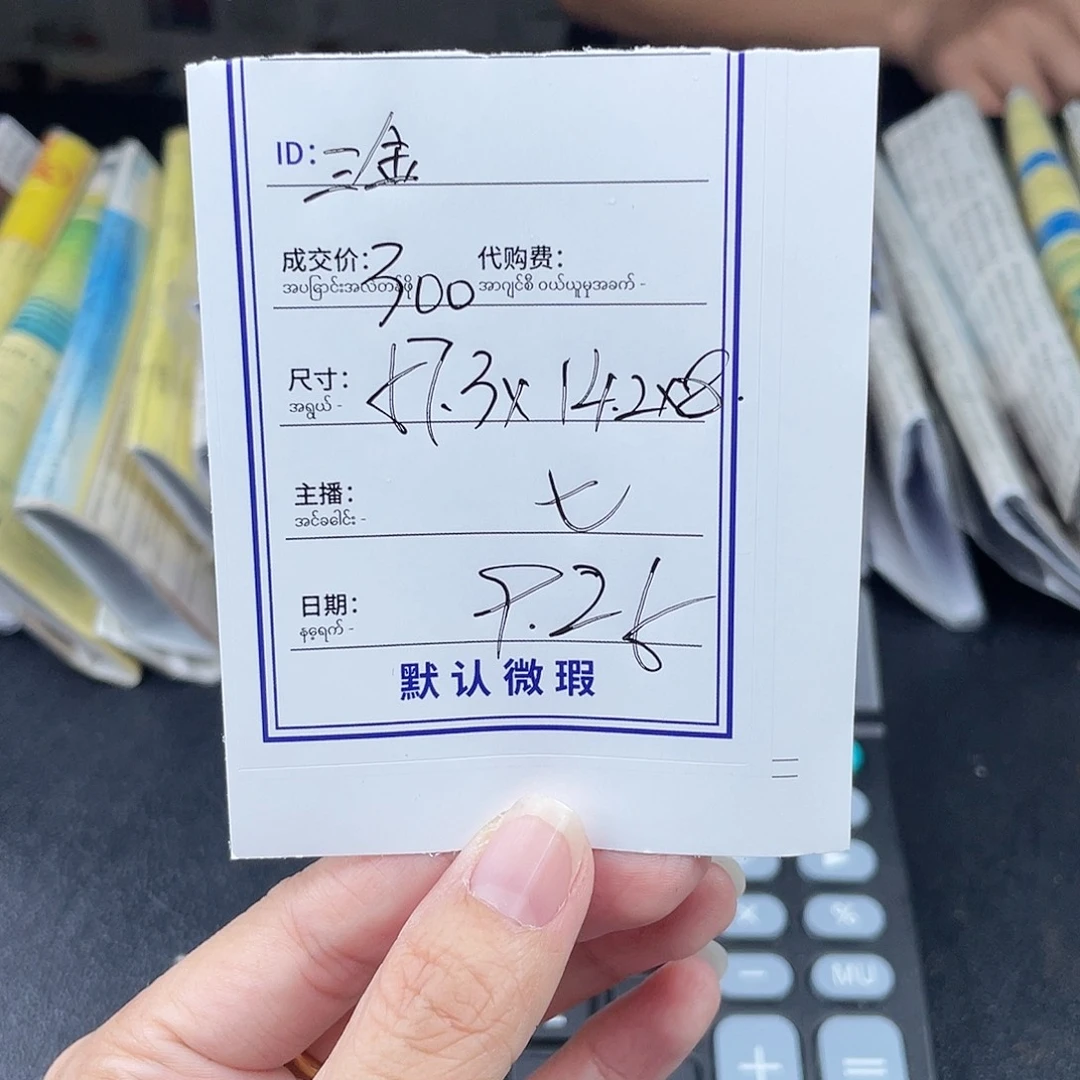 ID: 三金
成交价: 300 代购费:
အပြောင်းအလဲတန်ဖိုး အာဂျင်စီ ဝယ်ယူမှုအခက် -
尺寸: 57.3x14.2x8.
အရွယ် -
主播: 七
အင်ခခေါင်း -
日期: 7.26
နေ့ရက် -
默认微瑕
% 
MU
+ =